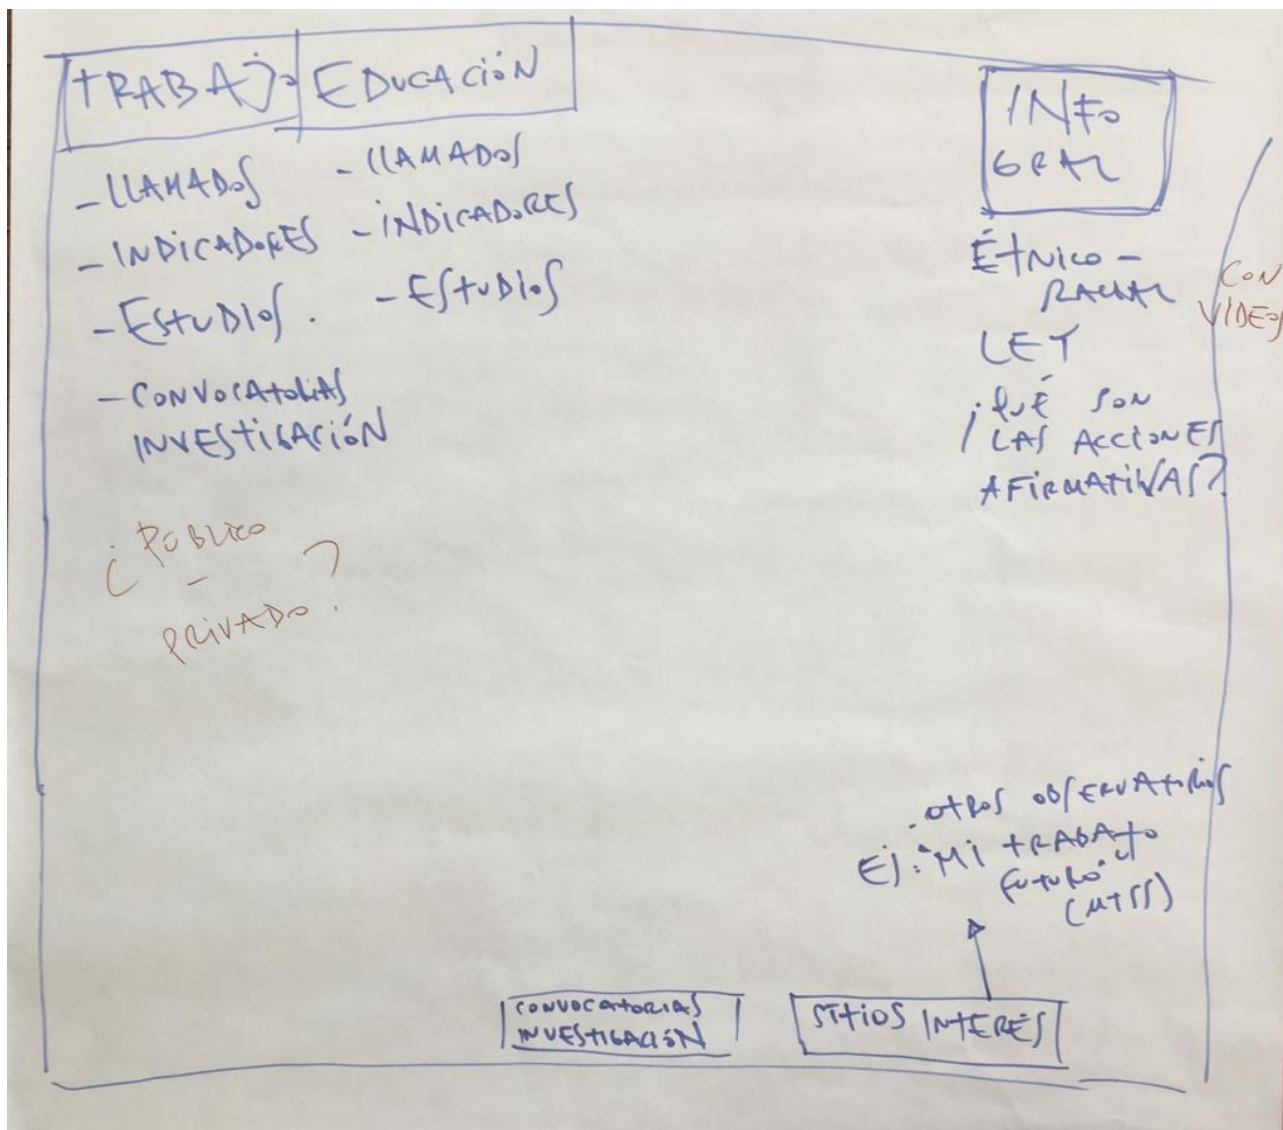 TRABAJO
EDUCACIÓN
- LLAMADOS
- INDICADORES
- ESTUDIOS.
- CONVOCATORIAS
INVESTIGACIÓN
¿PÚBLICO
-
PRIVADO?
- LLAMADOS
- INDICADORES
- ESTUDIOS
INFO
GRAL
ÉTNICO -
RACIAL
LEY
¿QUÉ SON
LAS ACCIONES
AFIRMATIVAS?
CON
VIDEOS
. OTROS OBSERVATORIOS
Ej: "MI TRABAJO
FUTURO"
(MTSS)
CONVOCATORIAS
INVESTIGACIÓN
SITIOS INTERÉS